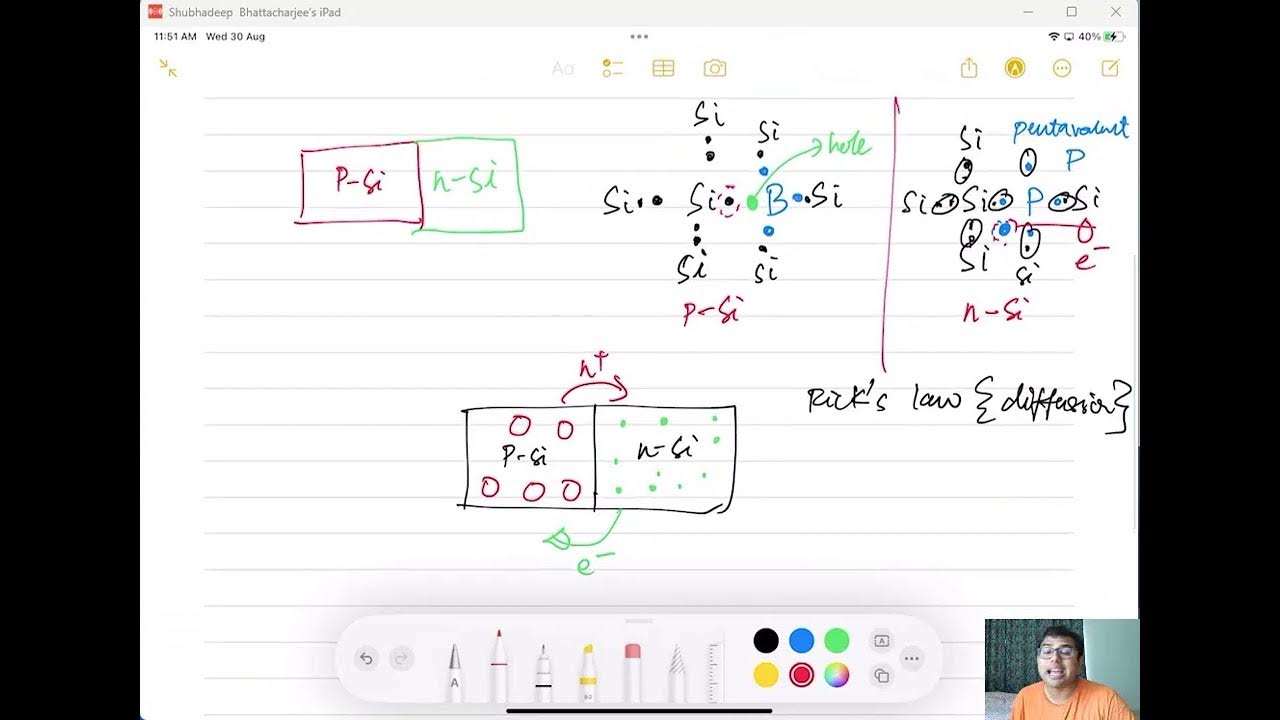 Shubhadeep Bhattacharjee's iPad
11:51 AM Wed 30 Aug
40%
Aa
P-Si
n-Si
Si
Si
hole
Si
Si
B
Si
Si
Si
P-Si
Si
pentavalent
P
Si
Si
P
Si
Si
Si
e-
n-Si
h+
P-Si
n-Si
e-
Rick's law {diffusion}
A
80
A